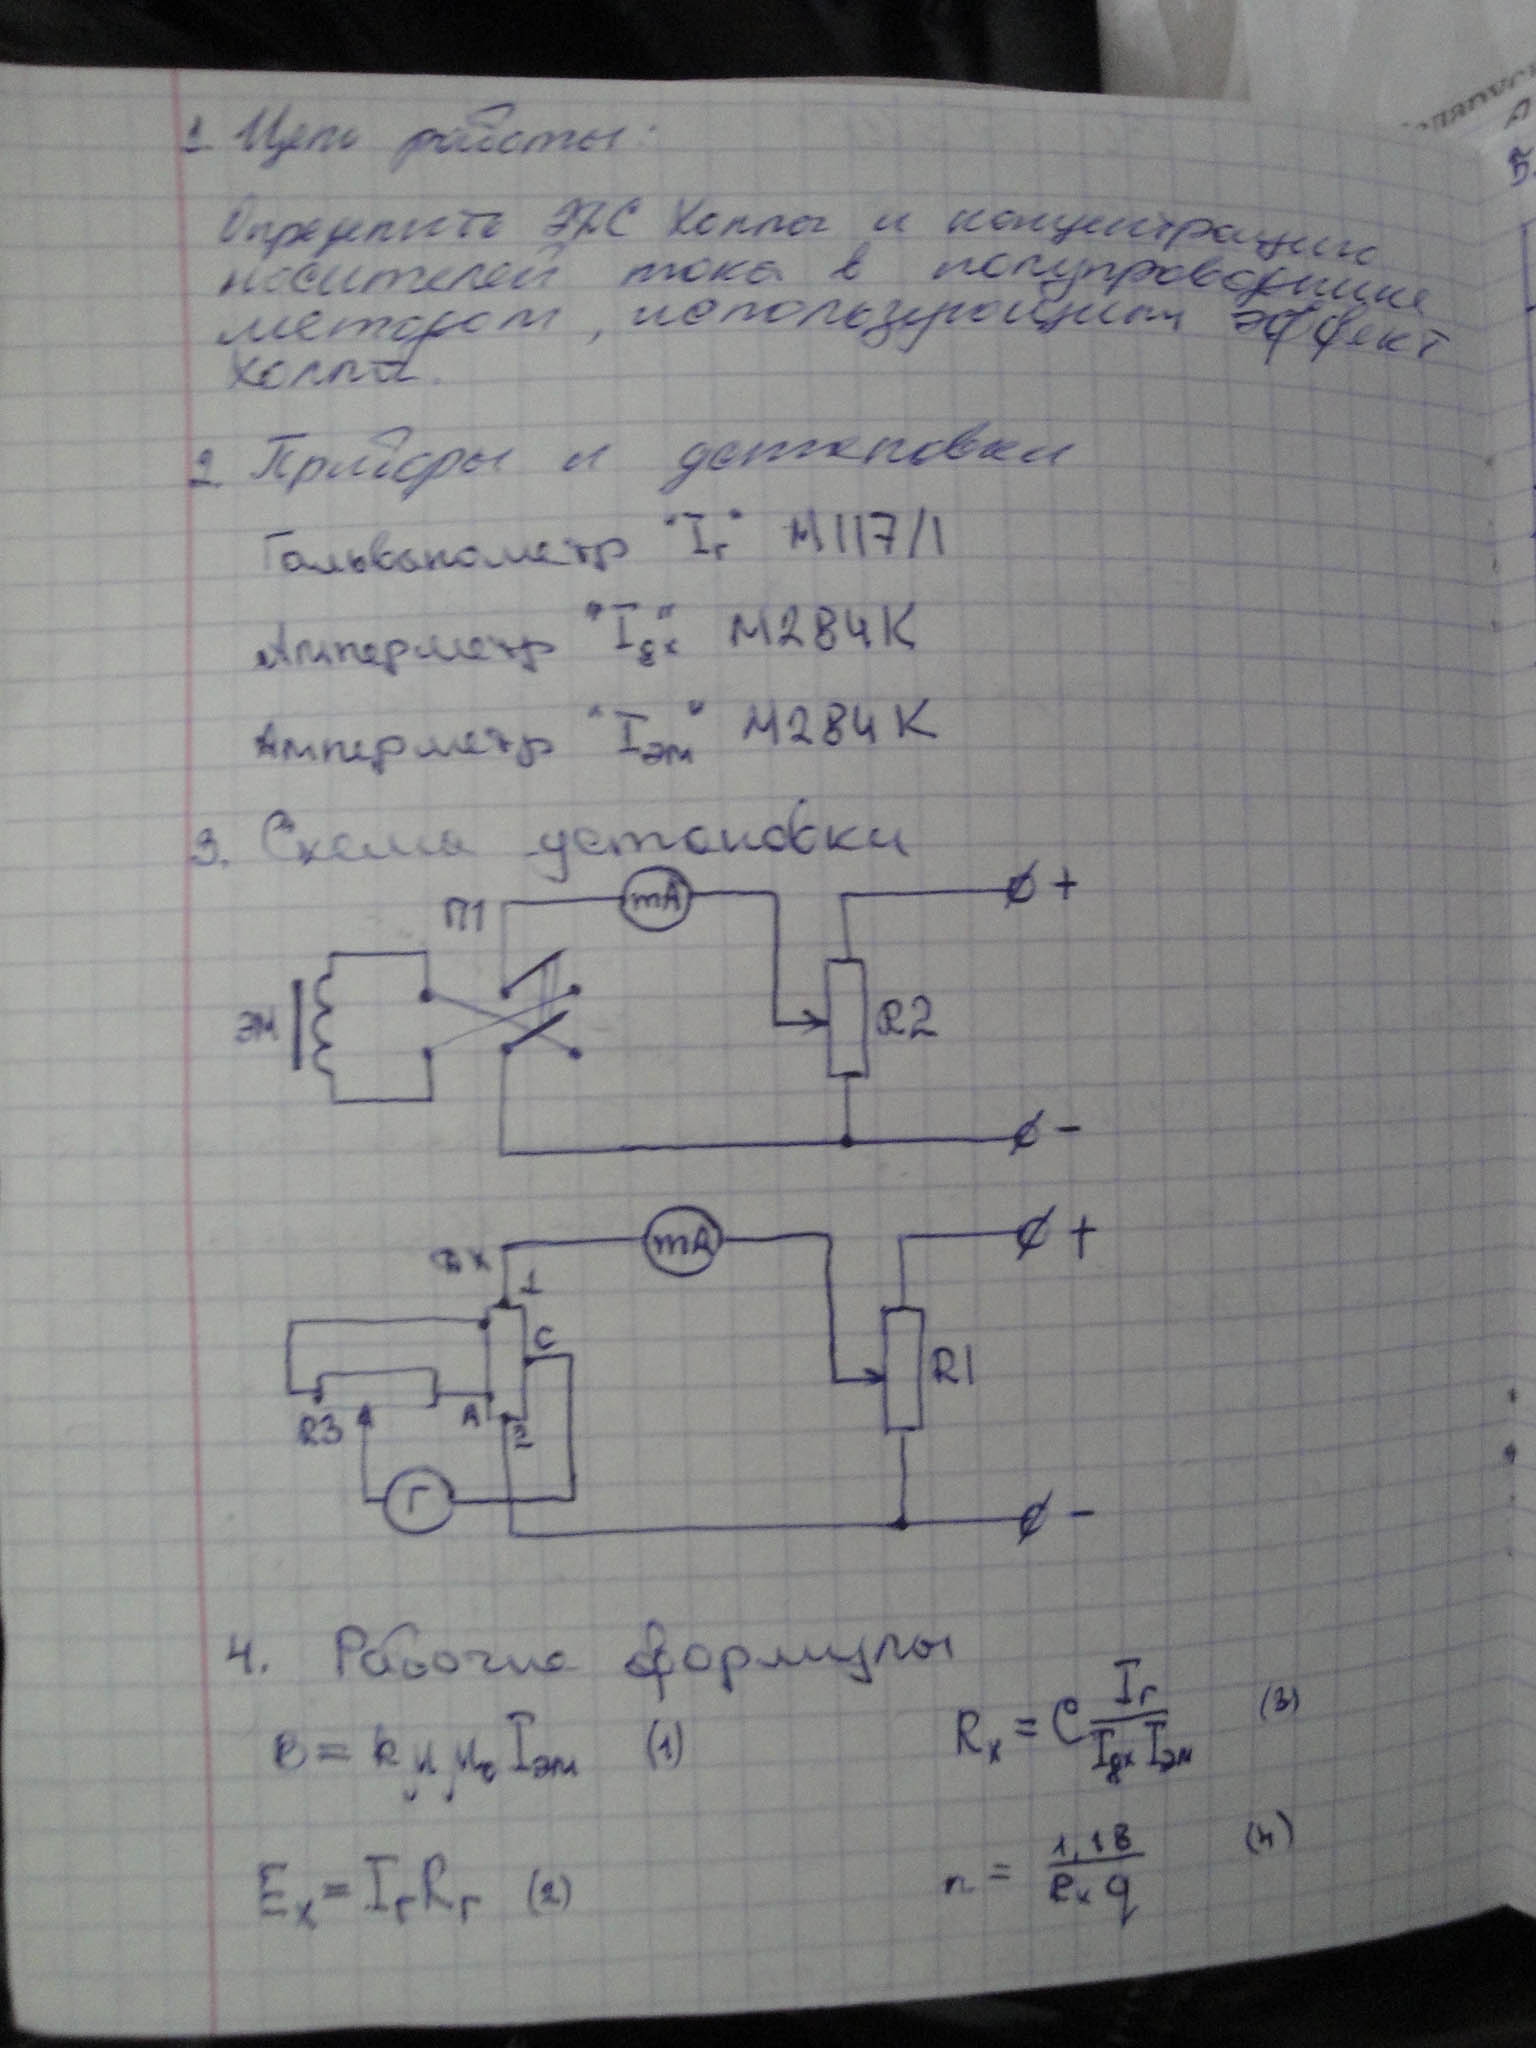 1. Цель работы:
Определить ЭДС Холла и концентрацию
носителей тока в полупроводнике
методом, использующим эффект
Холла.
2. Приборы и установки
Гальванометр "Iг" М117/1
Амперметр "Iдх" М284К
Амперметр "Iэм" М284К
3. Схема установки
П1 mA +
ЭМ R2
-
ДХ mA +
1
C
R1
R3 A 2
Г -
4. Рабочие формулы
B = k μ μ₀ Iэм (1)
Rx = C Iг / Iдх Iэм (3)
Ex = Iг Rг (2)
n = 1,18 / Rx q (4)